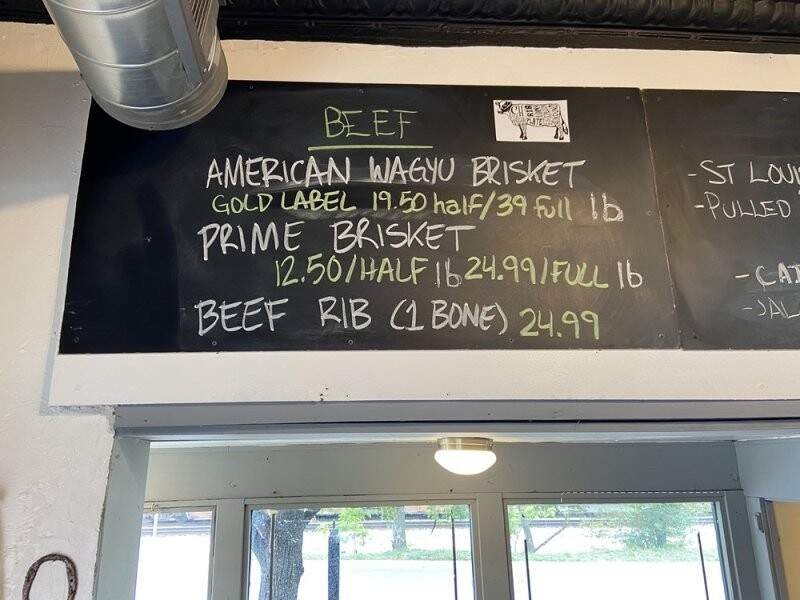 BEEF
AMERICAN WAGYU BRISKET
GOLD LABEL 19.50 half/39 full lb
PRIME BRISKET
12.50/HALF lb 24.99/FULL lb
BEEF RIB (1 BONE) 24.99
-ST LOU
-PULLED